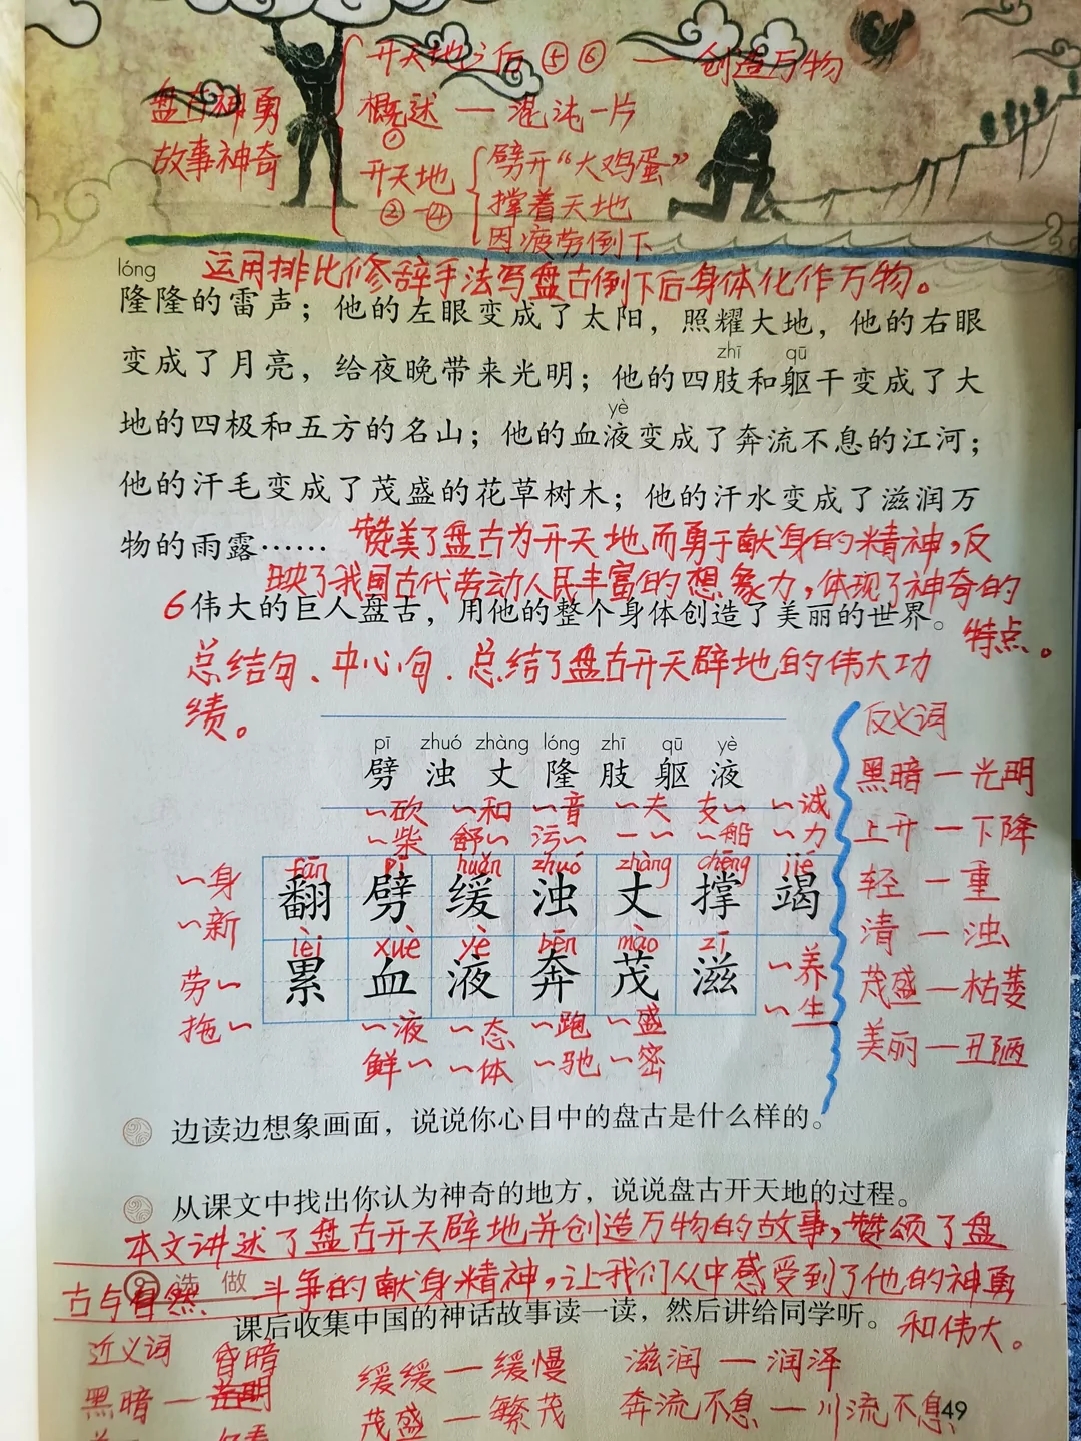 盘古神勇
故事神奇
开天地之后 ⑤ ⑥ — 创造万物
概述 — 混沌一片
①
开天地
②-④
劈开“大鸡蛋”
撑着天地
因疲劳倒下
运用排比修辞手法写盘古倒下后身体化作万物。
lóng
隆隆的雷声；他的左眼变成了太阳，照耀大地，他的右眼
zhī qū
变成了月亮，给夜晚带来光明；他的四肢和躯干变成了大
yè
地的四极和五方的名山；他的血液变成了奔流不息的江河；
他的汗毛变成了茂盛的花草树木；他的汗水变成了滋润万
物的雨露……
赞美了盘古为开天地而勇于献身的精神，反
映了我国古代劳动人民丰富的想象力，体现了神奇的
特点。
6 伟大的巨人盘古，用他的整个身体创造了美丽的世界。
总结句、中心句．总结了盘古开天辟地的伟大功
绩。
pī zhuó zhàng lóng zhī qū yè
劈 浊 丈 隆 肢 躯 液
~砍 ~和 ~音 ~夫 支~ ~诚
~柴 舒~ 污~ 一~ ~船 ~力
~身
~新
fān pī huǎn zhuó zhàng chēng jié
翻 劈 缓 浊 丈 撑 竭
劳~
拖~
lèi xuè yè bēn mào zī
累 血 液 奔 茂 滋
~养
~生
~液 ~态 ~跑 ~盛
鲜~ ~体 ~驰 ~密
反义词
黑暗—光明
上升—下降
轻—重
清—浊
茂盛—枯萎
美丽—丑陋
边读边想象画面，说说你心目中的盘古是什么样的。
从课文中找出你认为神奇的地方，说说盘古开天地的过程。
本文讲述了盘古开天辟地并创造万物的故事，赞颂了盘
古与自然 斗争的献身精神，让我们从中感受到了他的神勇
和伟大。
选做
课后收集中国的神话故事读一读，然后讲给同学听。
近义词
黑暗—昏暗
缓缓—缓慢
滋润—润泽
茂盛—繁茂
奔流不息—川流不息
49